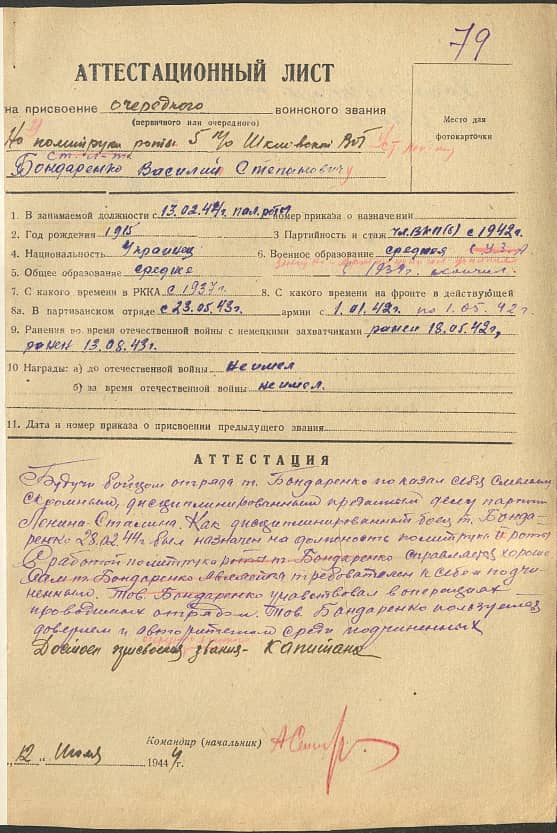 79
АТТЕСТАЦИОННЫЙ ЛИСТ
на присвоение очередного воинского звания
(первичного или очередного)
Место для
фотокарточки
политрука роты 5 п/о Шкловской
Бондаренко Василий Степанович
1. В занимаемой должности с 13.02.44г. номер приказа о назначении
2. Год рождения 1915 3 Партийность и стаж чл.ВКП(б) с 1942г.
4. Национальность Украинец 6. Военное образование средняя
5. Общее образование средне с 1939г. окончил.
7. С какого времени в РККА с 1937г. 8. С какого времени на фронте в действующей
8а. В партизанском отряде с 23.05.43г. армии с 1.01.42 по 1.05.42г.
9. Ранения во время отечественной войны с немецкими захватчиками ранен 18.05.42г,
ранен 13.08.43г.
10 Награды: а) до отечественной войны не имел
б) за время отечественной войны не имел.
11. Дата и номер приказа о присвоении предыдущего звания
АТТЕСТАЦИЯ
Будучи бойцом отряда т. Бондаренко показал себя смелым,
скромным, дисциплинированным преданным делу партии
Ленина-Сталина. Как дисциплинированный боец т. Бонда-
ренко 23.02.44г был назначен на должность политрука роты
С работой политрука роты т. Бондаренко справляется хорошо
Сам т. Бондаренко требователен к себе и подчи-
ненным. Тов. Бондаренко участвовал в операциях
проводимых отрядом. Тов. Бондаренко пользуется
доверием и авторитетом среди подчиненных
Достоен присвоения звания - Капитана
Командир (начальник)
„12„ Июля 1944г.